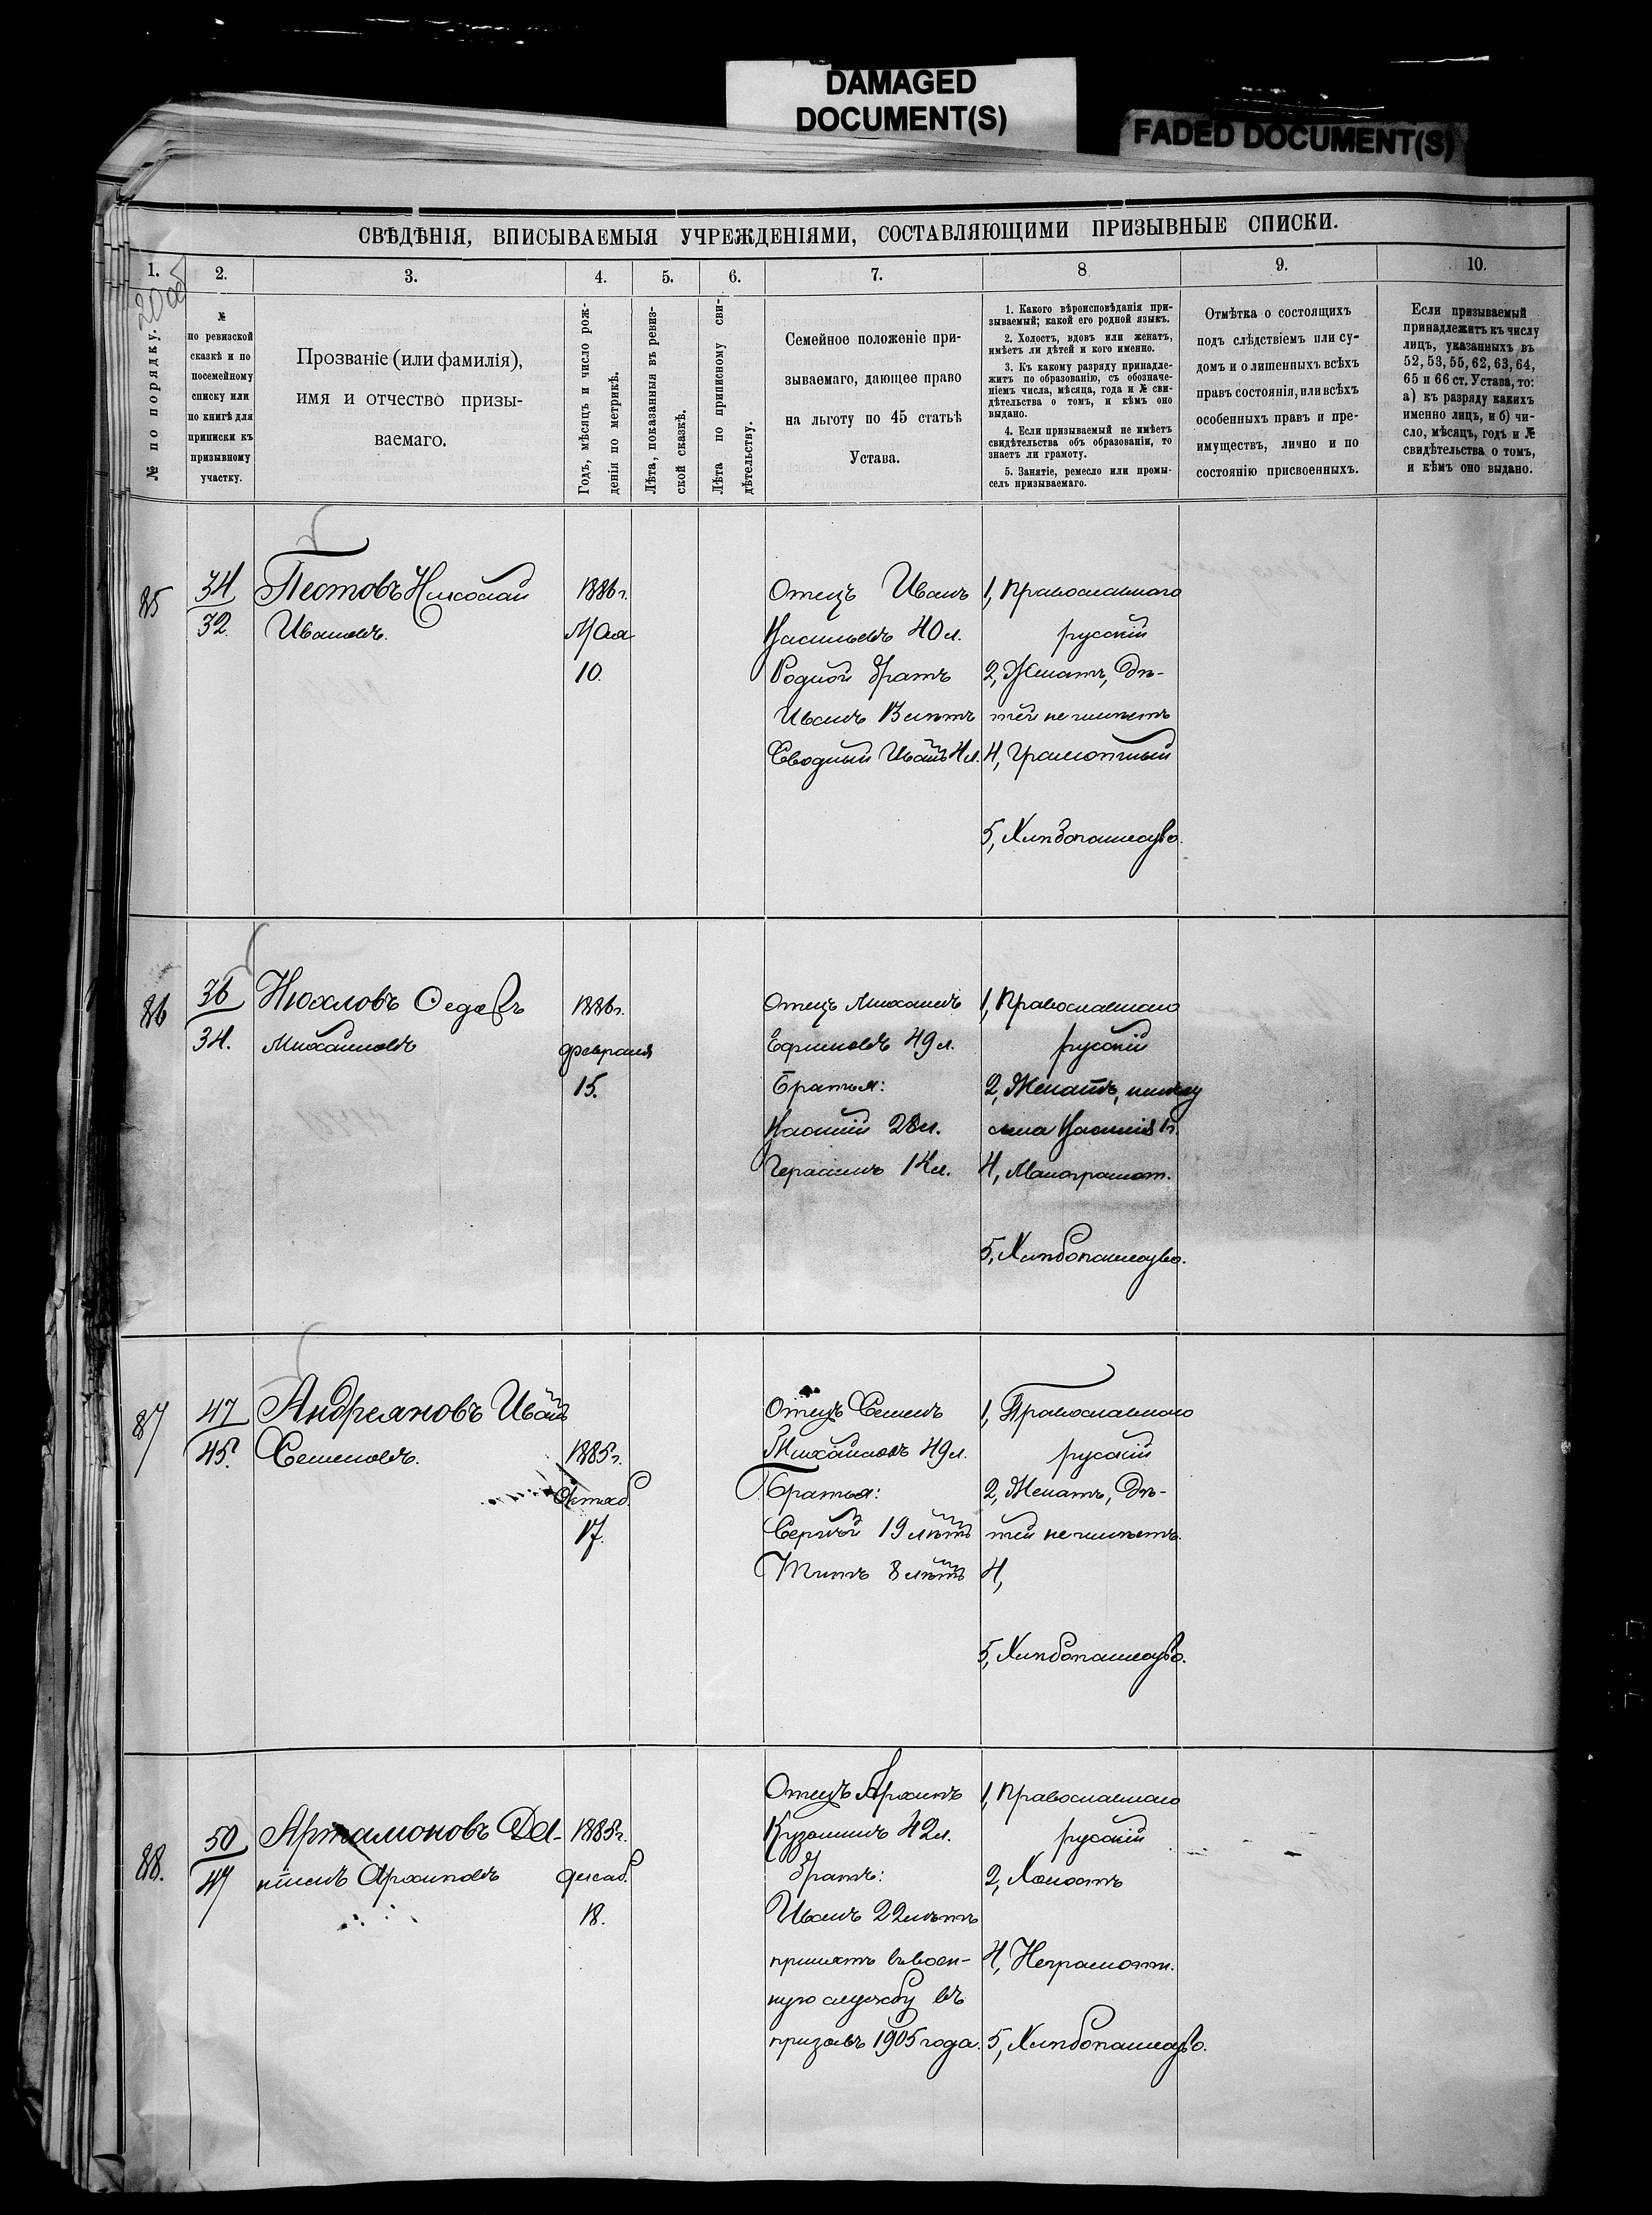 DAMAGED
DOCUMENT(S)
FADED DOCUMENT(S)
СВѢДѢНІЯ, ВПИСЫВАЕМЫЯ УЧРЕЖДЕНІЯМИ, СОСТАВЛЯЮЩИМИ ПРИЗЫВНЫЕ СПИСКИ.
1.
2.
3.
4.
5.
6.
7.
8
9.
10.
№ по порядку.
№
по ревизской
сказкѣ и по
посемейному
списку или
по книгѣ для
приписки къ
призывному
участку.
Прозваніе (или фамилія),
имя и отчество призы-
ваемаго.
Годъ, мѣсяцъ и число рож-
денія по метрикѣ.
Лѣта, показанныя въ ревиз-
ской сказкѣ.
Лѣта по приписному сви-
дѣтельству.
Семейное положеніе при-
зываемаго, дающее право
на льготу по 45 статьѣ
Устава.
1. Какого вѣроисповѣданія при-
зываемый; какой его родной языкъ.
2. Холостъ, вдовъ или женатъ,
имѣетъ ли дѣтей и кого именно.
3. Къ какому разряду принадле-
житъ по образованію, съ обозначе-
ніемъ числа, мѣсяца, года и № сви-
дѣтельства о томъ, и кѣмъ оно
выдано.
4. Если призываемый не имѣетъ
свидѣтельства объ образованіи, то
знаетъ ли грамоту.
5. Занятіе, ремесло или промы-
селъ призываемаго.
Отмѣтка о состоящихъ
подъ слѣдствіемъ или су-
домъ и о лишенныхъ всѣхъ
правъ состоянія, или всѣхъ
особенныхъ правъ и пре-
имуществъ, лично и по
состоянію присвоенныхъ.
Если призываемый
принадлежитъ къ числу
лицъ, указанныхъ въ
52, 53, 55, 62, 63, 64,
65 и 66 ст. Устава, то:
а) къ разряду какихъ
именно лицъ, и б) чи-
сло, мѣсяцъ, годъ и №
свидѣтельства о томъ,
и кѣмъ оно выдано.
85
34
32.
Пестовъ Николай
Ивановъ.
1886 г.
Мая
10.
Отецъ Иванъ
Васильевъ 40 л.
Родной братъ
Иванъ 13 лѣтъ
Сводный Иванъ 4 л.
1, Православнаго
русскій
2, Женатъ, дѣ-
тей не имѣетъ
4, Грамотный
5, Хлѣбопашество.
86
36
34.
Нюхловъ Федоръ
Михайловъ
1886 г.
Февраля
15.
Отецъ Михаилъ
Ефимовъ 49 л.
Братья:
Василій 28 л.
Герасимъ 14 л.
1, Православнаго
русскій
2, Женатъ,
сына Василія 1 г.
4, Малограмот.
5, Хлѣбопашество.
87
47
45.
Андреяновъ Иванъ
Семеновъ.
1885 г.
Октяб.
17.
Отецъ Семенъ
Михайловъ 49 л.
Братья:
Сергѣй 19 лѣтъ
Титъ 8 лѣтъ
1, Православнаго
русскій
2, Женатъ, дѣ-
тей не имѣетъ.
4,
5, Хлѣбопашество.
88.
50
47
Артамоновъ Да-
ніилъ Архиповъ
1885 г.
Декаб.
18.
Отецъ Архипъ
Кузьминъ 42 л.
братъ:
Иванъ 22 лѣтъ
принятъ въ воен-
ную службу въ
призывъ 1905 года.
1, Православнаго
русскій
2, Холостъ
4, Неграмотн.
5, Хлѣбопашество.